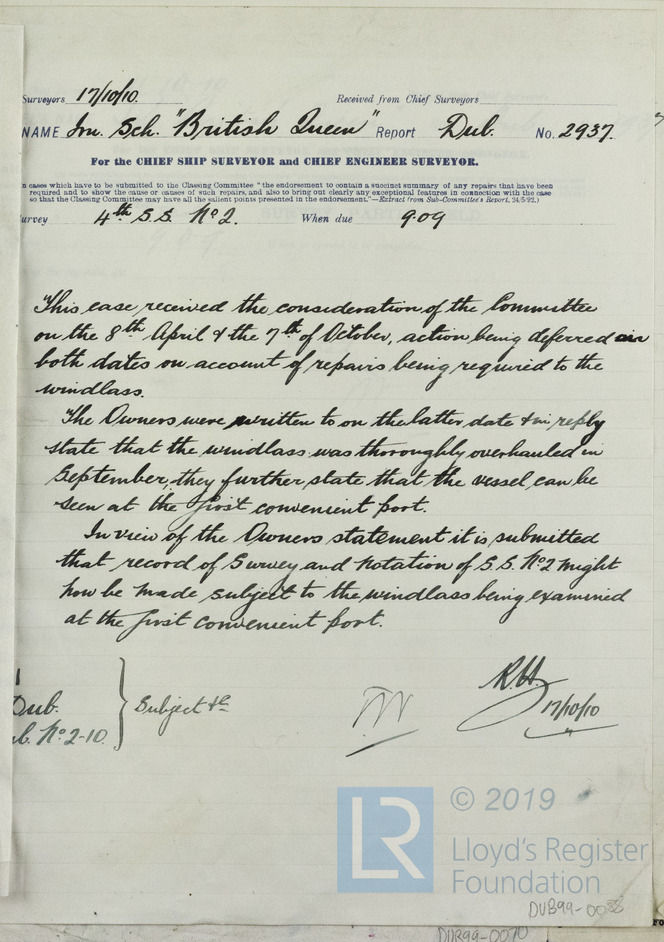 Surveyors 17/10/10. Received from Chief Surveyors
NAME Irn. Sch. "British Queen" Report Dub. No. 2937.
For the CHIEF SHIP SURVEYOR and CHIEF ENGINEER SURVEYOR.
n cases which have to be submitted to the Classing Committee "the endorsement to contain a succinct summary of any repairs that have been
required and to show the cause or causes of such repairs, and also to bring out clearly any exceptional features in connection with the case,
so that the Classing Committee may have all the salient points presented in the endorsement."—Extract from Sub-Committee's Report, 24/5/92.)
urvey 4th S.S. No 2. When due 9.09
This case received the consideration of the Committee
on the 8th April & the 7th of October, action being deferred on
both dates on account of repairs being required to the
windlass.
The Owners were written to on the latter date & in reply
state that the windlass was thoroughly overhauled in
September, they further state that the vessel can be
seen at the first convenient port.
In view of the Owners statement it is submitted
that record of Survey and notation of S.S. No 2 might
now be made subject to the windlass being examined
at the first convenient port.
Dub. } Subject &c
b. No 2-10.
R.H.
17/10/10
LR
© 2019
Lloyd's Register
Foundation
DUB99-0070